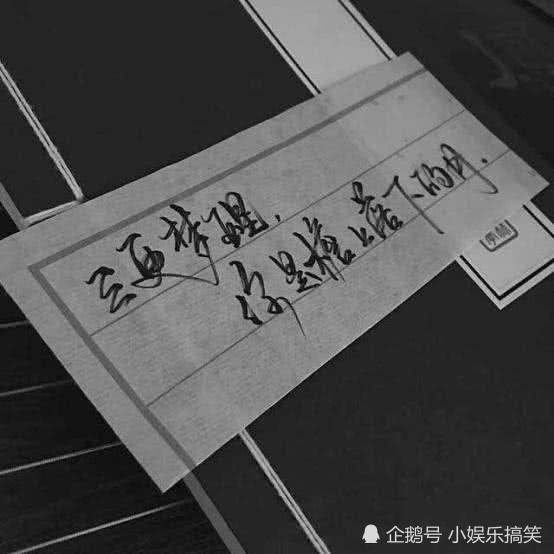 三更梦醒，
你是檐上落下的月．
企鹅号 小娱乐搞笑